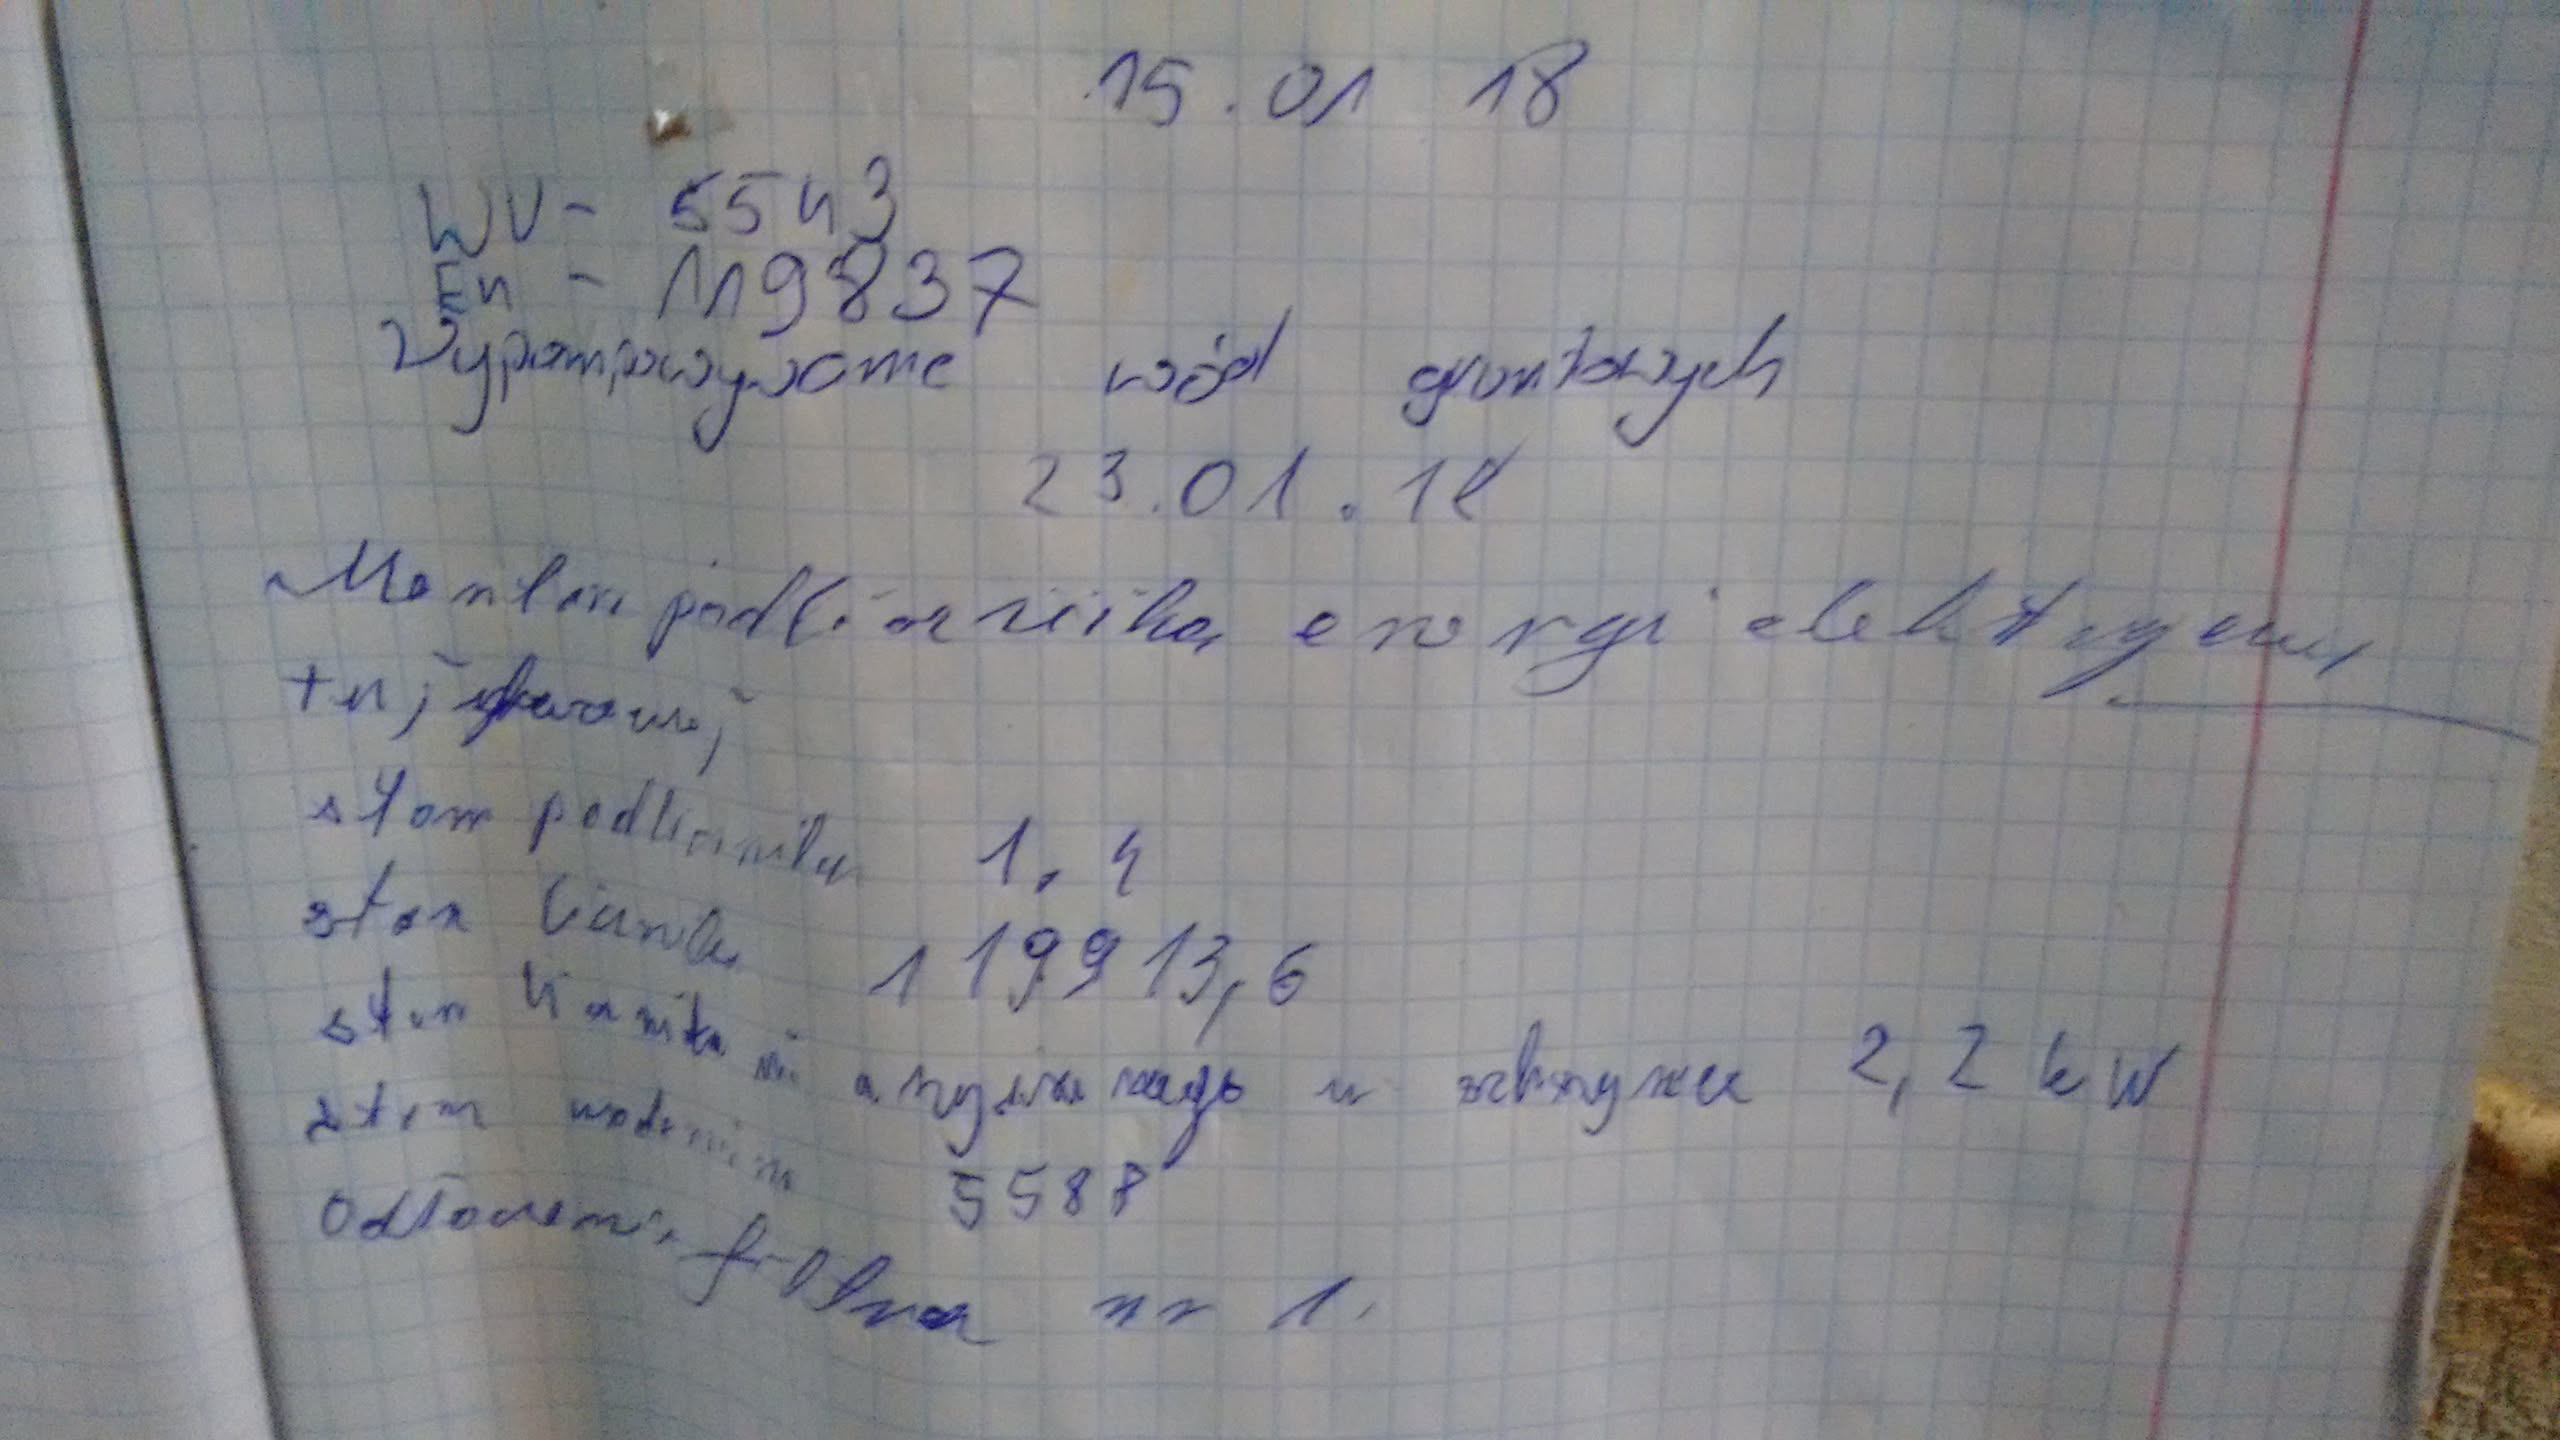 15.01 18
WU - 5543
En - 119837
Wypompowywanie wód gruntowych
23.01.18
Montaż podlicznika energi elektrycznej
stan podlicznika 1,4
stan licznika 119913,6
stan licznika w 2,2 kW
stan wodomierza 5588
Odłączenie nr 1.